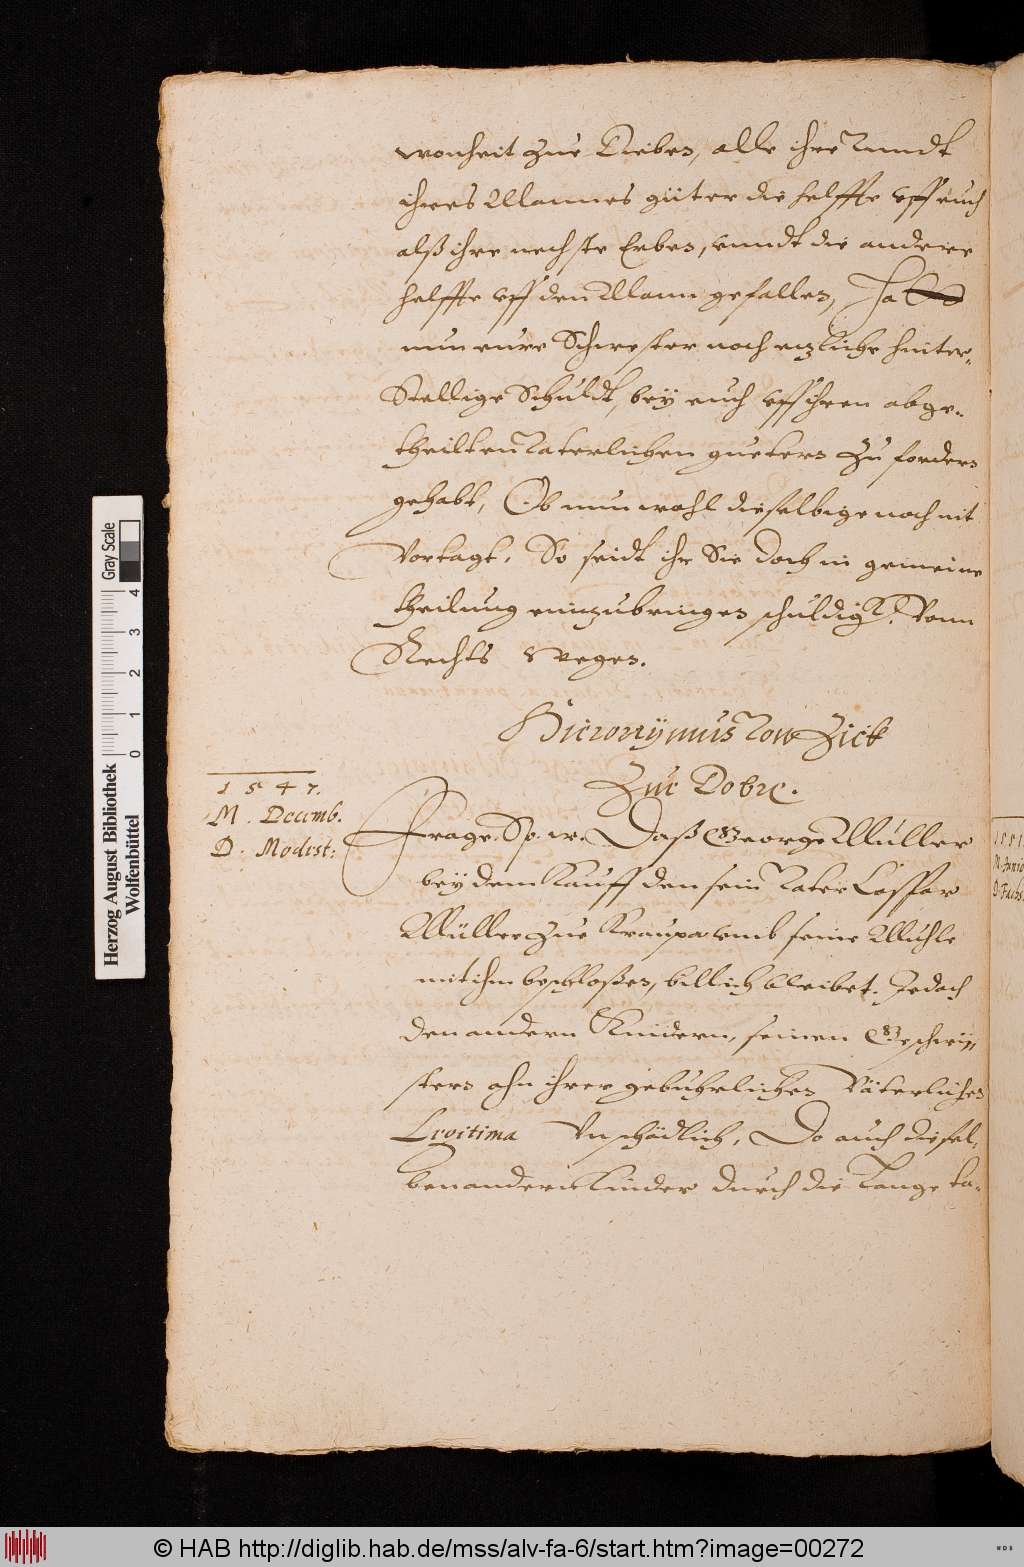 wonheit zue Dieben, alle ihre vnndt
ihres Mannes güter die helffte vff euch
alß ihre nechste Erben, vnndt die andere
helffte vff den Mann gefallen, Ha
nun eure Schwester noch etzliche hinter-
Stellige Schuldt, bey euch vff ihren abge-
theilten Vaterlichen guetern zu fordern
gehabt, Ob nun wohl dieselbige noch nit
Vortagt. So seidt ihr Sie doch in gemeine
theilung einzubringen schuldigk. Vonn
Rechts Wegen.
Hieronÿmus von Zick
Zue Dobre.
1 5 4 7.
M. Decemb.
D. Modest:
Frage. Sp. w. Daß George Müller
bey dem Kauff den sein Vater Casspar
Müller zue Kraupa vmb seine Muhle
mit ihm beschloßen, billich bleibet. Jedoch
den andern Kindern, seinen Geschwi-
stern ahn ihrer gebuhrlichen Väterlichen
Legitima Vnschädlich, Do auch diesel-
ben andern Kinder durch die Lange ta-
1551.
M. Junio
D. Fachs.
Herzog August Bibliothek
Wolfenbüttel
Gray Scale
0 1 2 3 4
© HAB http://diglib.hab.de/mss/alv-fa-6/start.htm?image=00272